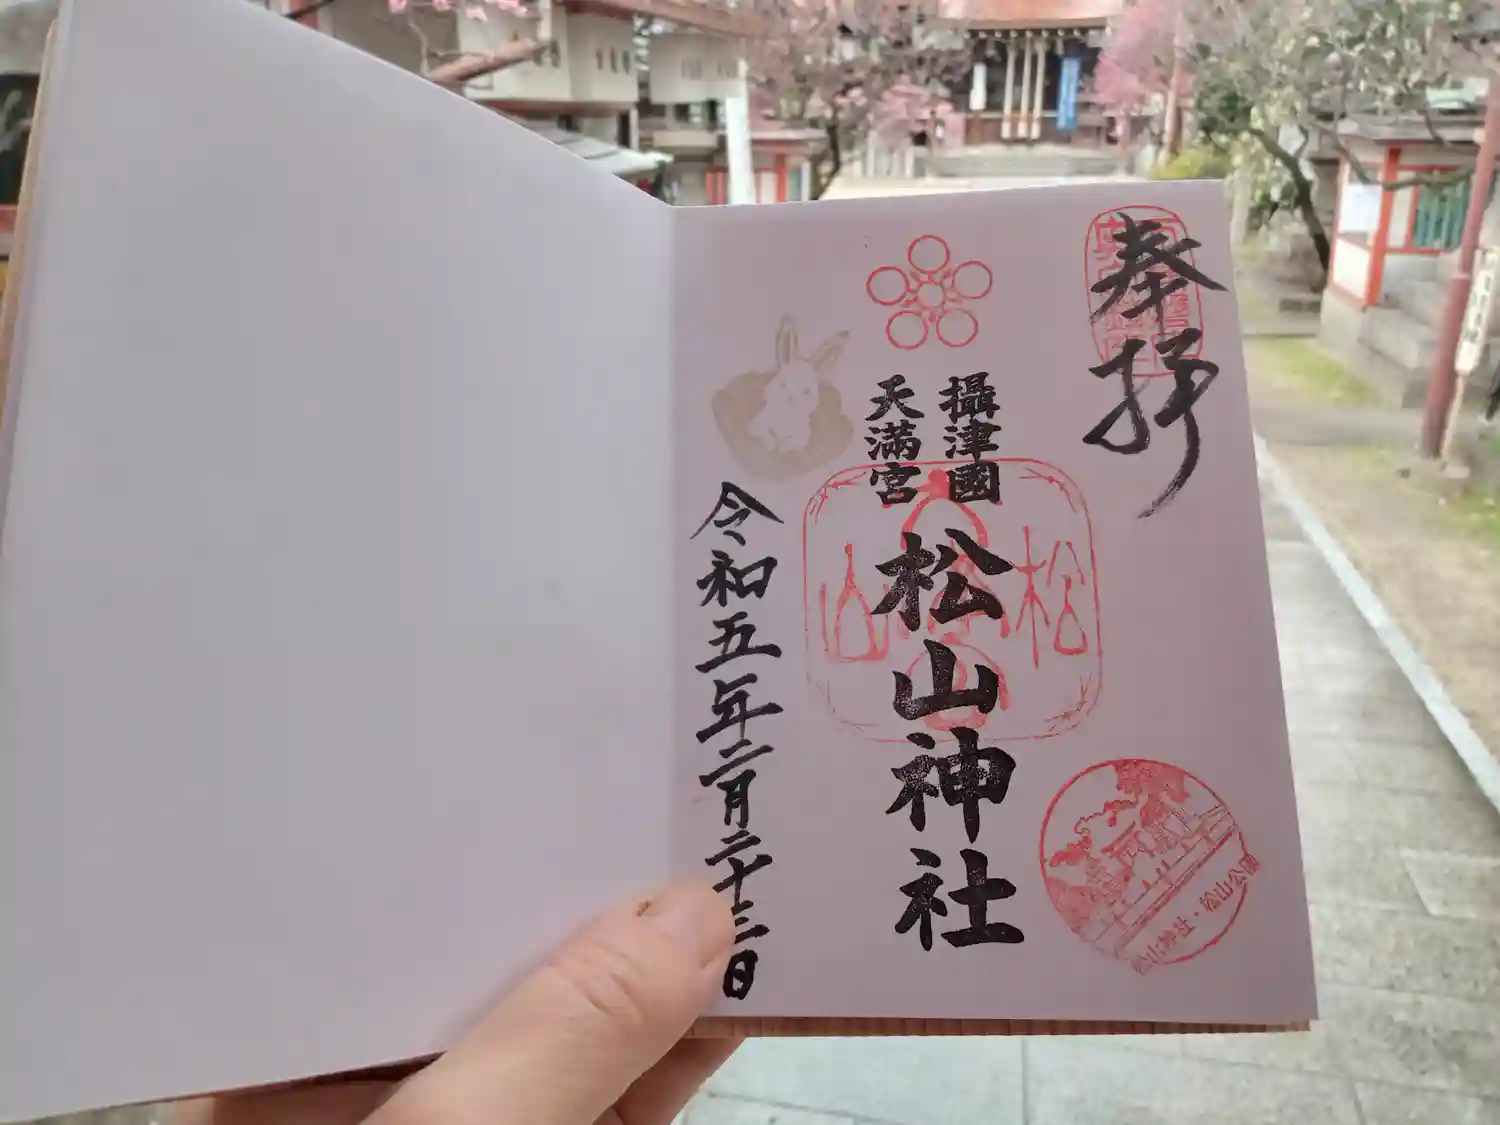 奉拝
攝津國
天満宮
松山神社
令和五年二月二十三日
松山
松山神社・松山公園